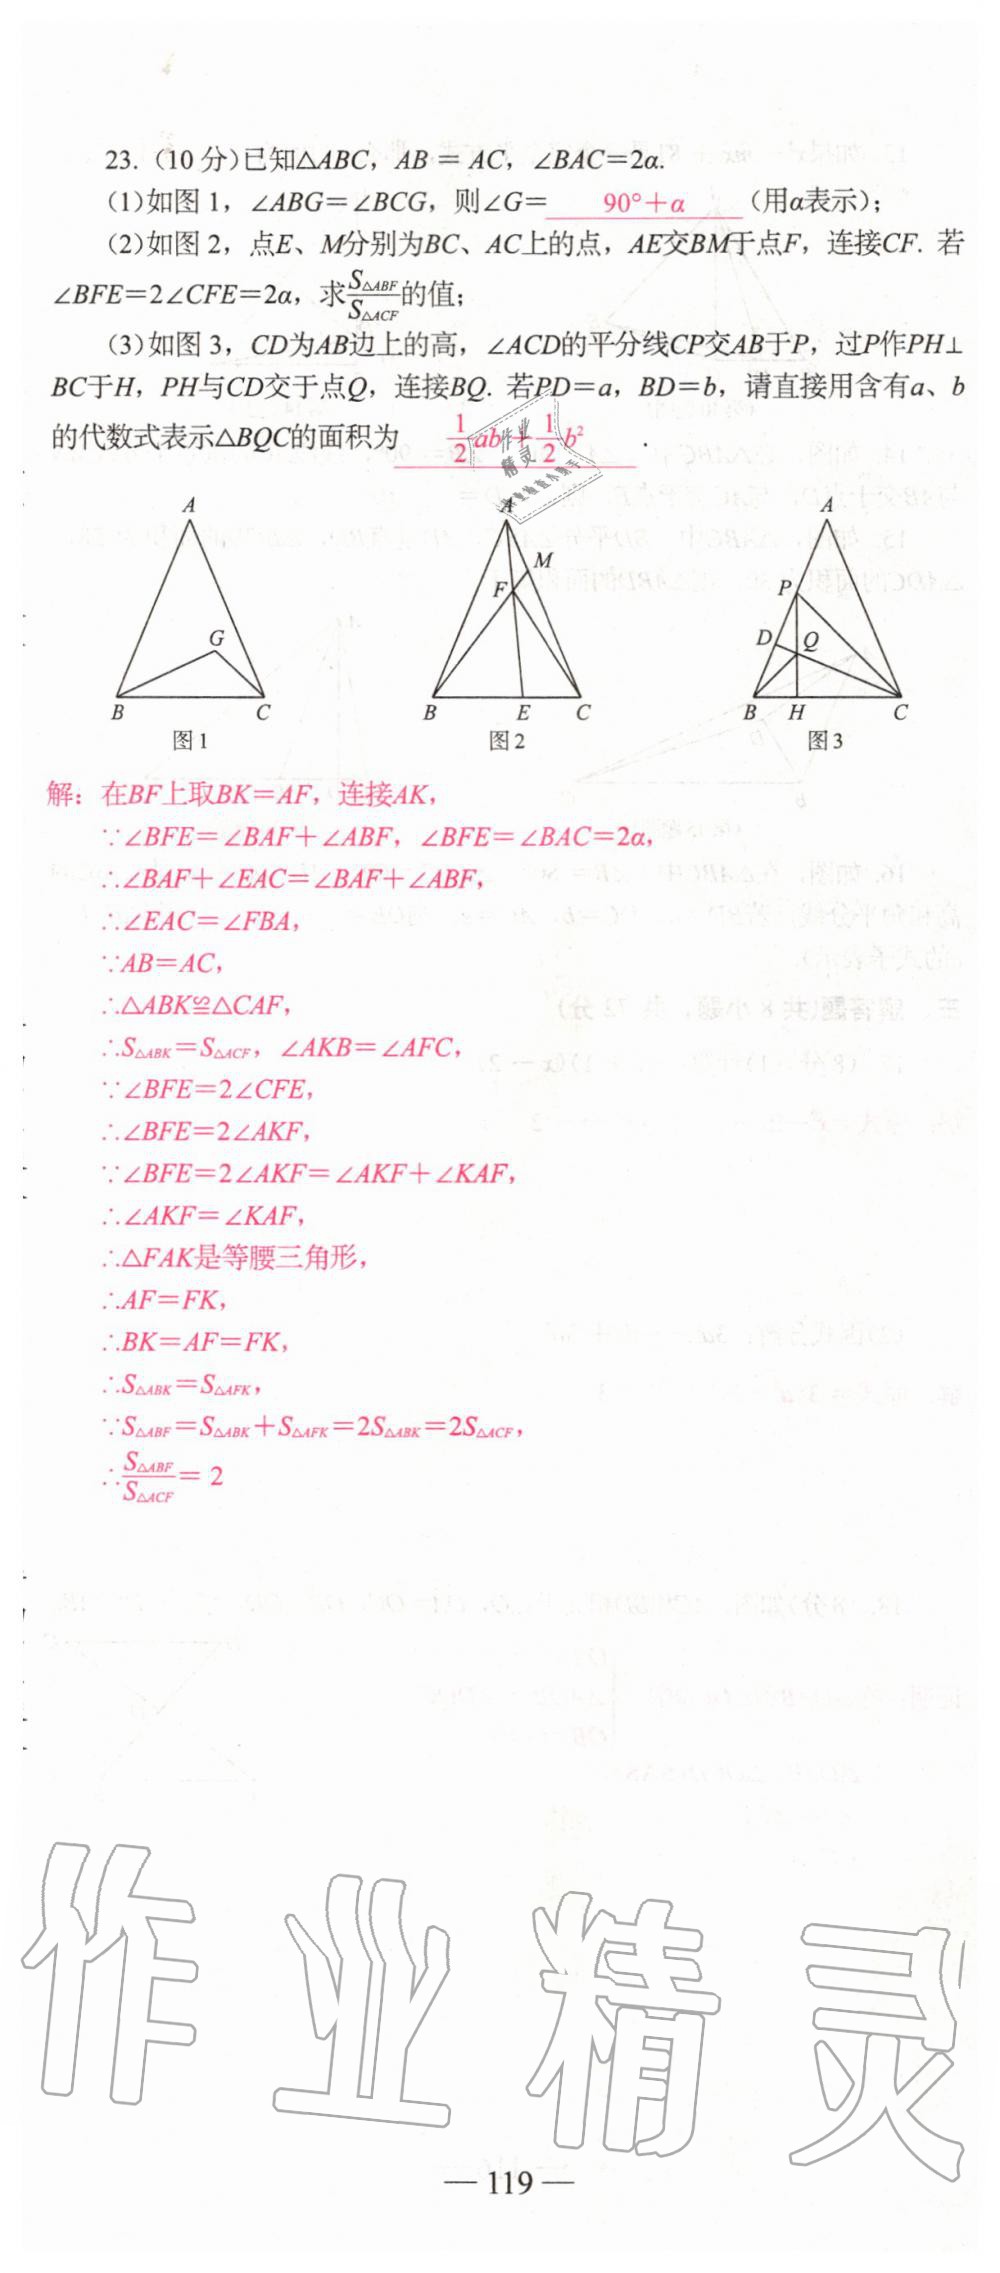 23. (10分)已知△ABC，AB = AC，∠BAC=2α.
(1)如图1，∠ABG=∠BCG，则∠G= 90°+α (用α表示)；
(2)如图2，点E、M分别为BC、AC上的点，AE交BM于点F，连接CF. 若
∠BFE=2∠CFE=2α，求S△ABF/S△ACF的值；
(3)如图3，CD为AB边上的高，∠ACD的平分线CP交AB于P，过P作PH⊥
BC于H，PH与CD交于点Q，连接BQ. 若PD=a，BD=b，请直接用含有a、b
的代数式表示△BQC的面积为 1/2 ab + 1/2 b² .
作业
精灵
A
G
B C
图1
A
M
F
B E C
图2
A
P
D Q
B H C
图3
解：在BF上取BK=AF，连接AK，
∵∠BFE=∠BAF+∠ABF，∠BFE=∠BAC=2α，
∴∠BAF+∠EAC=∠BAF+∠ABF，
∴∠EAC=∠FBA，
∵AB=AC，
∴△ABK≌△CAF，
∴S△ABK=S△ACF，∠AKB=∠AFC，
∵∠BFE=2∠CFE，
∴∠BFE=2∠AKF，
∵∠BFE=2∠AKF=∠AKF+∠KAF，
∴∠AKF=∠KAF，
∴△FAK是等腰三角形，
∴AF=FK，
∴BK=AF=FK，
∴S△ABK=S△AFK，
∵S△ABF=S△ABK+S△AFK=2S△ABK=2S△ACF，
∴S△ABF/S△ACF = 2
作业精灵
— 119 —